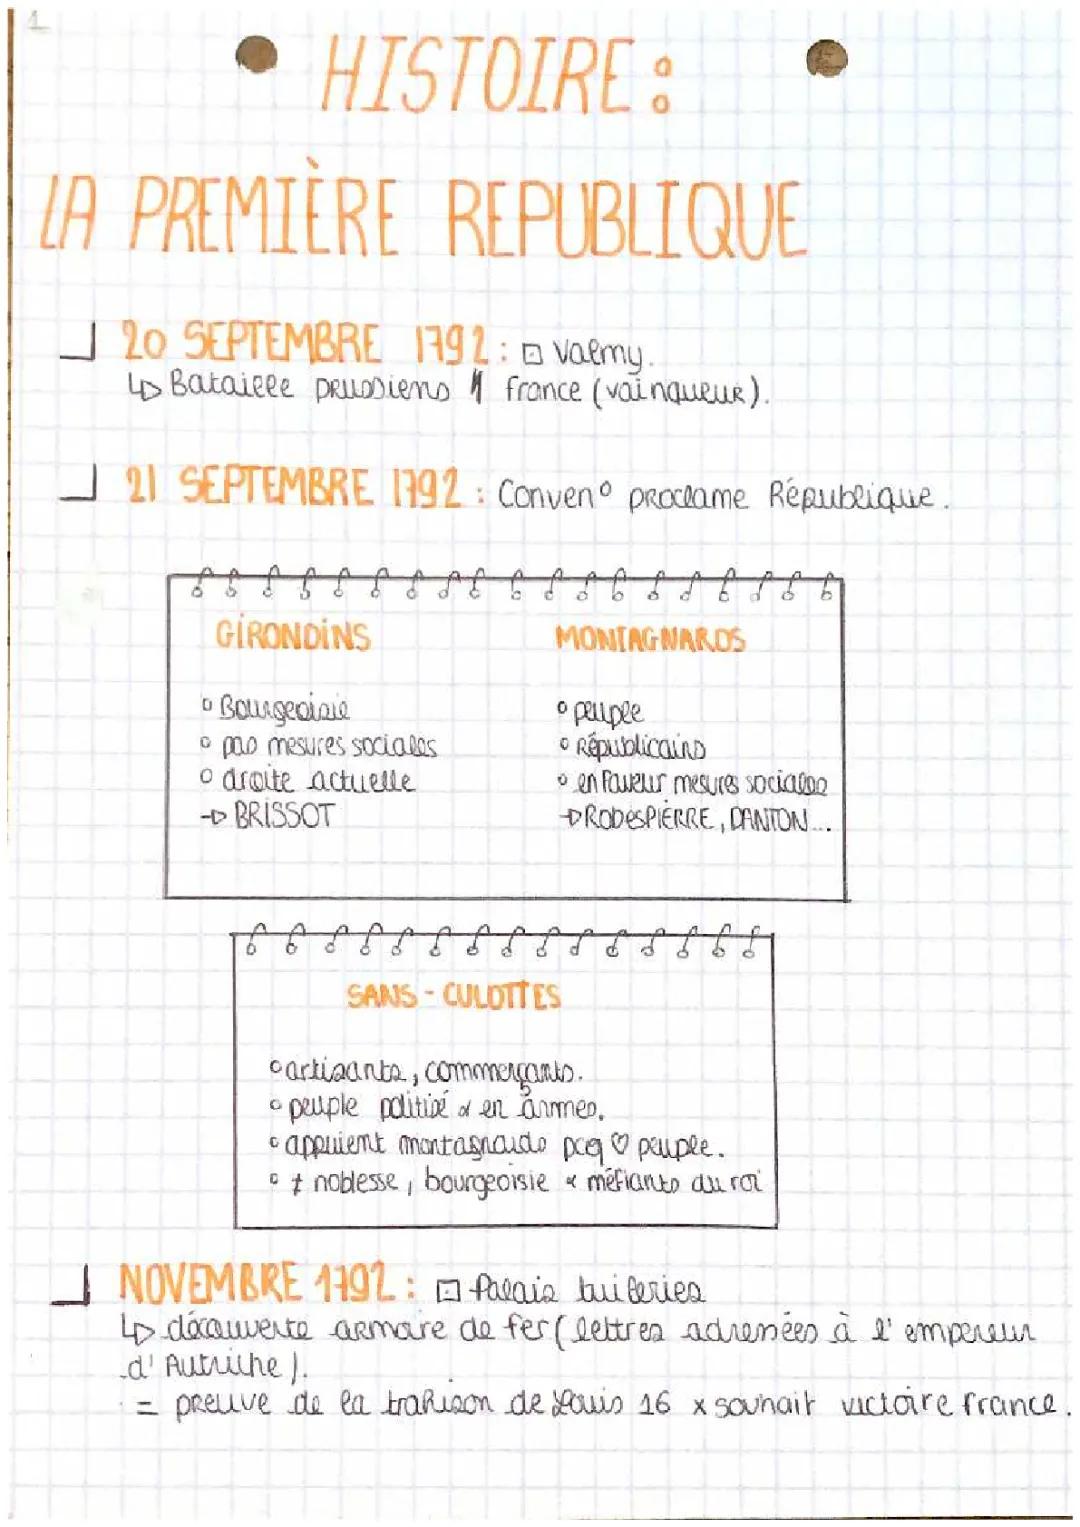 1
HISTOIRE :
LA PREMIÈRE REPUBLIQUE
20 SEPTEMBRE 1792 : ⊡ Valmy.
↳ Bataille prussiens // france (vainqueur).
21 SEPTEMBRE 1792 : Conven° proclame République.
GIRONDINS
MONTAGNARDS
° Bourgeoisie
° peuple
° pas mesures sociales
° Républicains
° droite actuelle
° en faveur mesures sociales
→ BRISSOT
→ ROBESPIERRE, DANTON...
SANS - CULOTTES
° artisants, commerçants.
° peuple politisé & en armes.
° appuient montagnards pcq ♡ peuple.
° ≠ noblesse, bourgeoisie & méfiants du roi
NOVEMBRE 1792 : ⊡ Palais tuileries
↳ découverte armoire de fer (lettres adressées à l'empereur
d'Autriche).
= preuve de la trahison de Louis 16 x souhait victoire france.